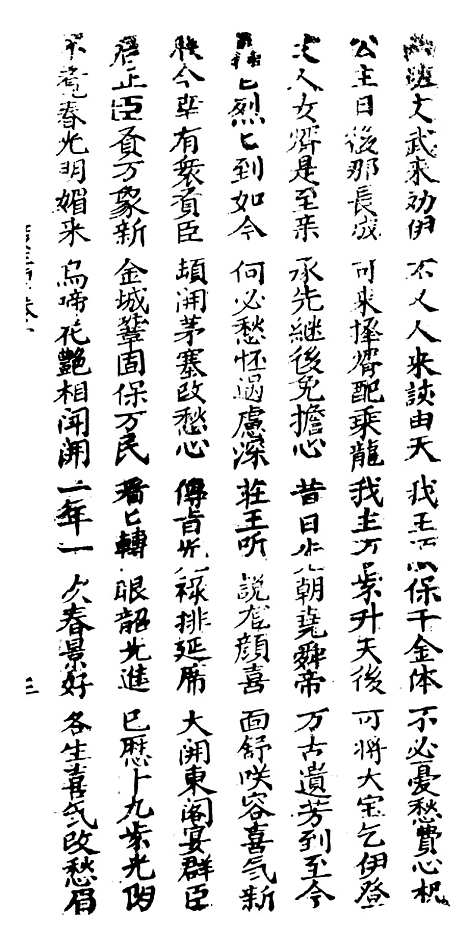 班文武来劝伊 不人来談由天 我王保千金体 不必憂愁費心机
公主日後那長成 可来擇婿配乘龍 我主万崇升天後 可將大宝乞伊登
丈人女婿是至亲 承先継後免擔心 昔日朝堯舜帝 万古遺芳到至今
匕烈匕到如今 何必愁怀過慮深 莊王听說龙顔喜 面舒咲容喜氣新
朕今幸有衆賁臣 頓開茅塞改愁心 傳旨光祿排延席 大開東阁宴群臣
君正臣賁万象新 金城鞏固保万民 看匕轉眼韶光進 已歷十九紫光阴
不覚春光明媚来 鸟啼花艷相闹開 一年一次春景好 各生喜气改愁眉
三